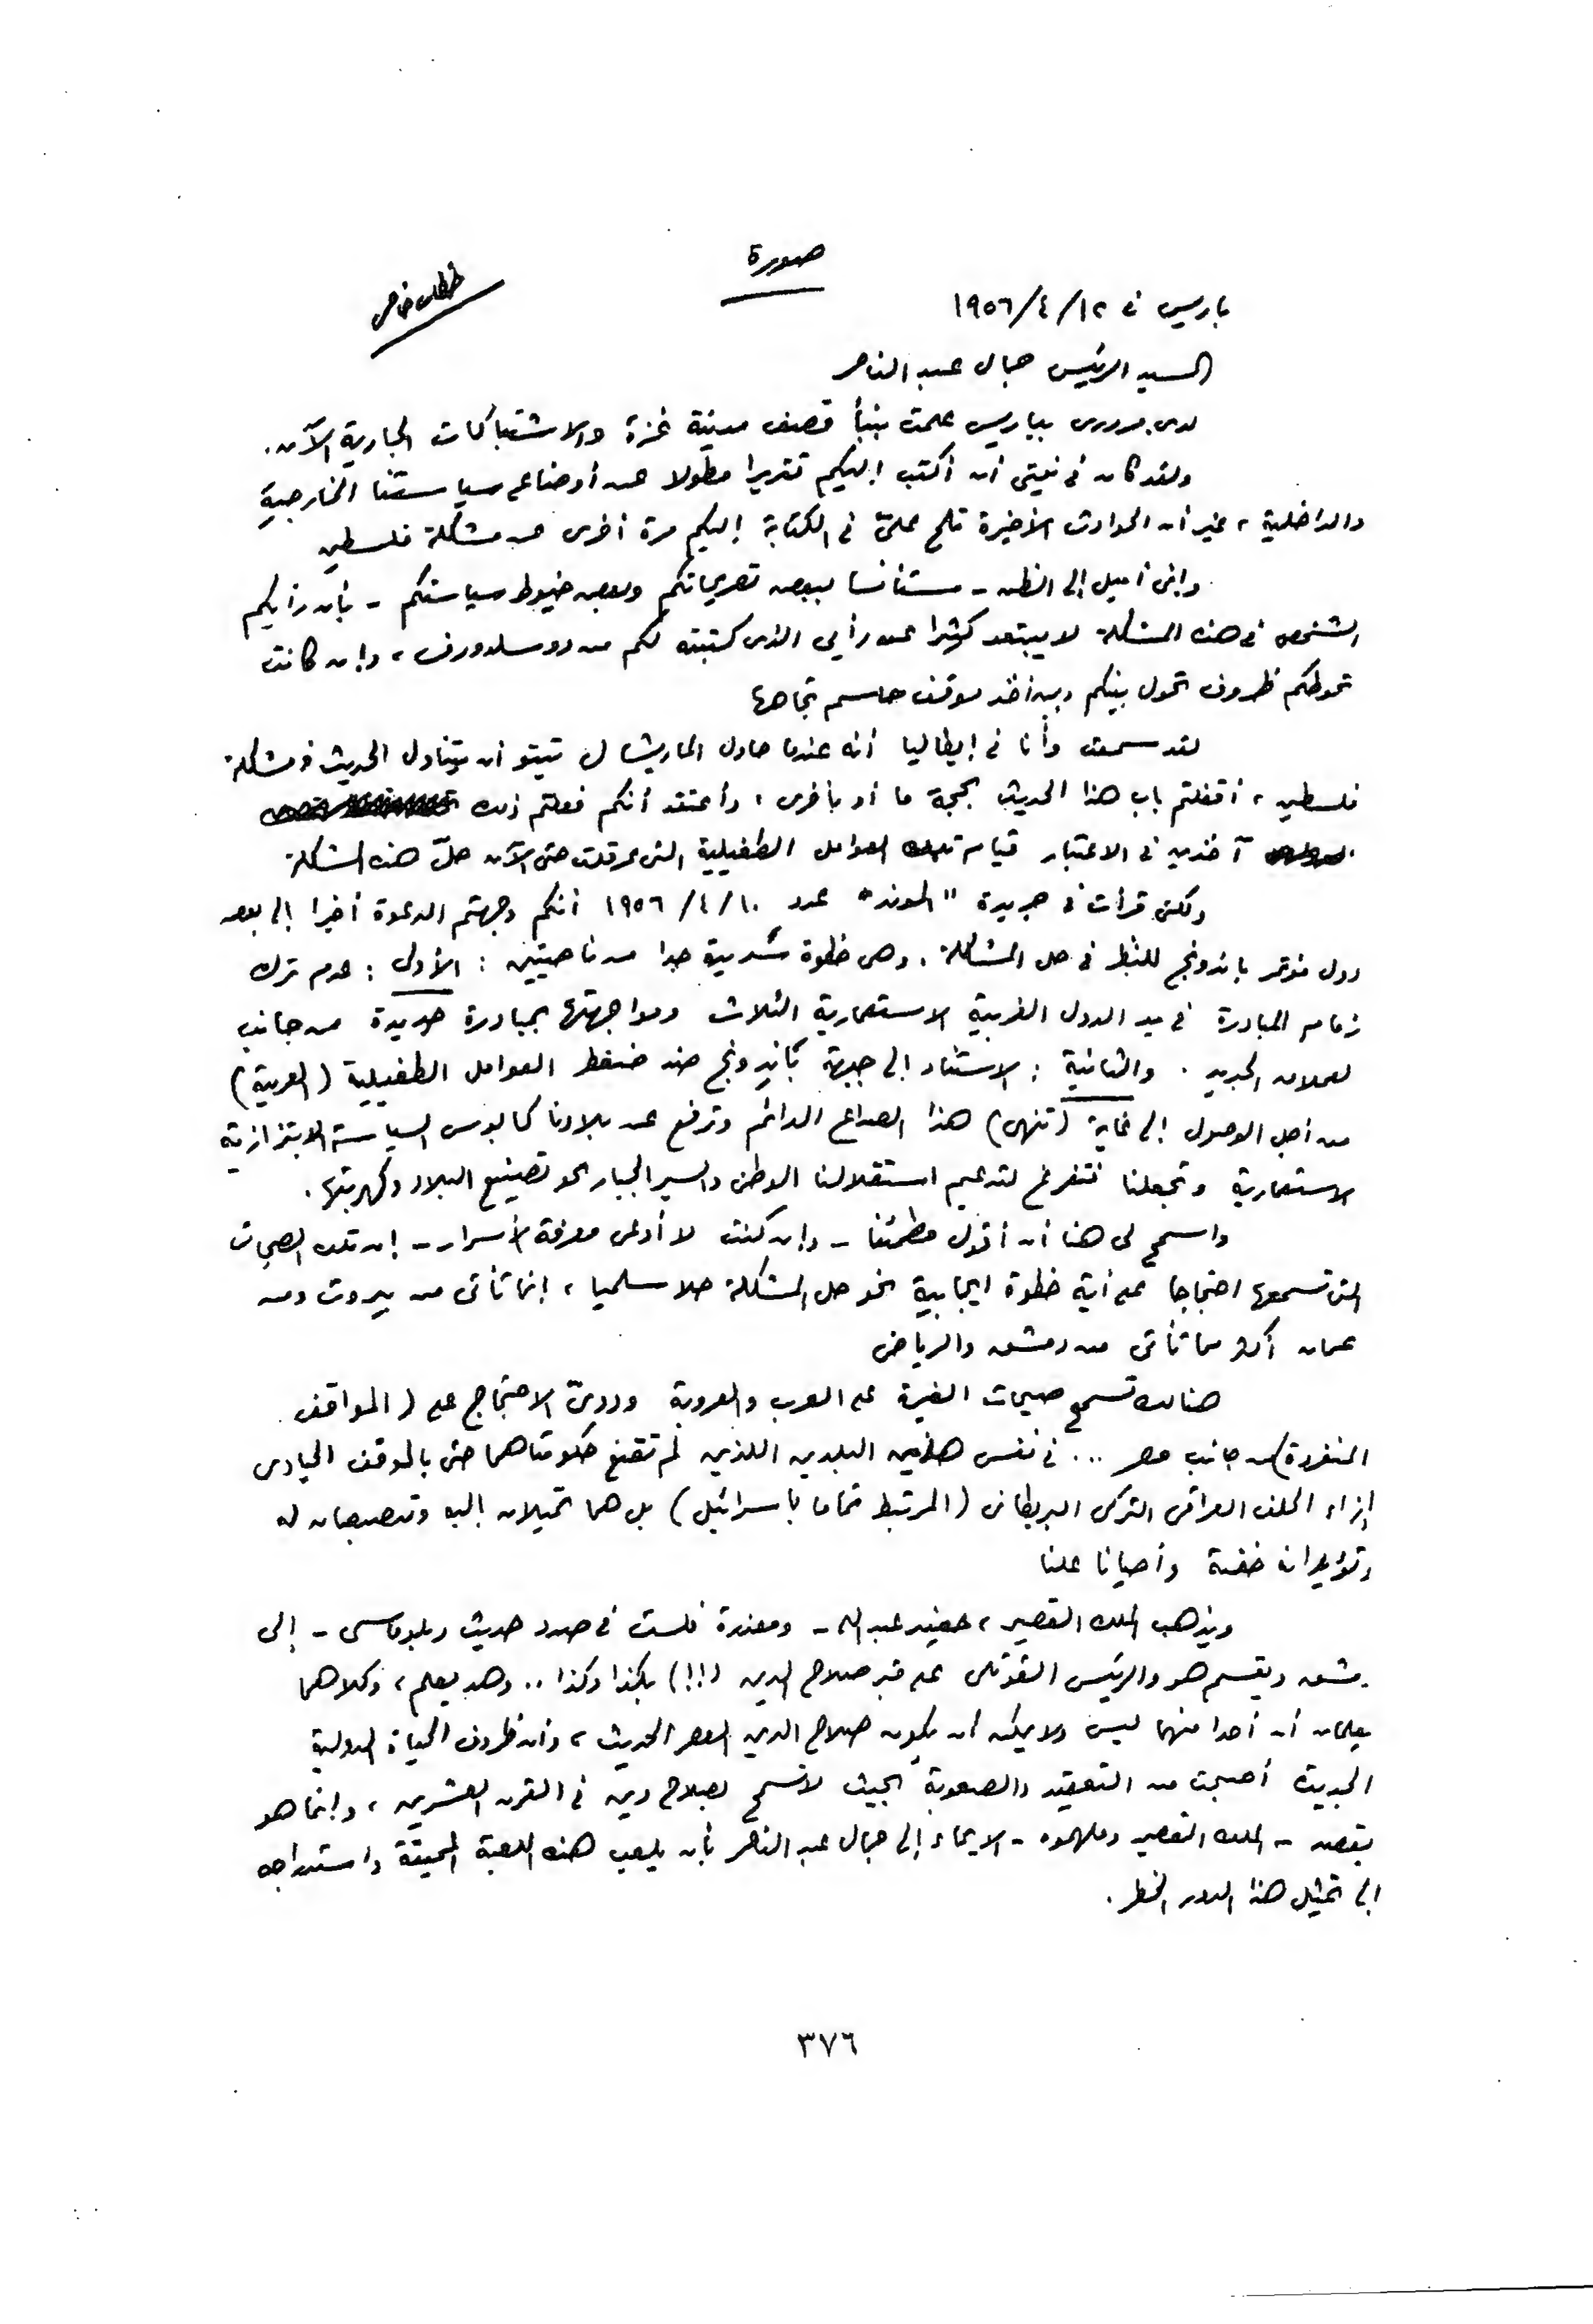 صورة
خطاب خاص
باريس فى ١٢/٤/١٩٥٦
السيد الرئيس جمال عبد الناصر
لدى مرورى بباريس علمت بنبأ قصف مدينة غزة والاشتباكات الجارية الآن.
ولقد كان فى نيتى أن أكتب إليكم تقريرا مطولا عن أوضاع سياستنا الخارجية
والداخلية، غير أن الحوادث الأخيرة تلح علىّ فى الكتابة إليكم مرة أخرى عن مشكلة فلسطين
وإنى أميل إلى الظن - مستأنسا ببعض تصريحاتكم وبعض خيوط سياستكم - بأن رأيكم
الشخصى فى هذه المشكلة لا يبتعد كثيرا عن رأيى الذى كتبته لكم من دوسلدورف، وإن كانت
تحوطكم ظروف تحول بينكم وبين أخذ موقف حاسم تجاهها
لقد سمعت وأنا فى إيطاليا أنه عندما حاول الماريشال تيتو أن يتناول الحديث فى مشكلة
فلسطين، أقفلتم باب هذا الحديث بحجة ما أو بأخرى، وأعتقد أنكم فعلتم ذلك
آخذين فى الاعتبار قيام تلك العوامل الطفيلية التى عرقلت حتى الآن حلّ هذه المشكلة
ولكنى قرأت فى جريدة "الموند" عدد ١٠/٤/١٩٥٦ أنكم وجهتم الدعوة أخيرا إلى بعض
دول مؤتمر باندونج للنظر فى حل المشكلة. وهى خطوة سديدة جدا من ناحيتين: الأولى: عدم ترك
زمام المبادرة فى يد الدول الغربية الاستعمارية الثلاث ومواجهتها بمبادرة جديدة من جانب
العملاق الجديد. والثانية: الاستناد إلى جبهة باندونج ضد ضغط العوامل الطفيلية (العربية)
من أجل الوصول إلى غاية (تنهى) هذا الصداع الدائم وترفع عن بلادنا كابوس السياسة الابتزازية
الاستعمارية وتجعلنا نتفرغ لتدعيم استقلالنا الوطنى والسير الجبار نحو تصنيع البلاد وكهربتها.
واسمح لى هنا أن أقول مطمئنا - وإن كنت لا أدعى معرفة الأسرار - إن تلك الصيحات
التى تسمعها احتجاجا على أية خطوة ايجابية نحو حل المشكلة حلا سلميا، إنما تأتى من بيروت ومن
عمان أكثر مما تأتى من دمشق والرياض
هنالك تسمع صيحات الغيرة على العرب والعروبة ودوىّ الاحتجاج على (المواقف
المنفردة) من جانب مصر ... فى نفس هذين البلدين اللذين لم تقنع حكومتاهما حتى بالموقف الحيادى
إزاء الحلف العراقى التركى البريطانى (المرتبط تماما بإسرائيل) بل هما تميلان إليه وتبصبصان له
وتؤيدانه خفية وأحيانا علنا
ويذهب الملك القصير، حفيد عبد الله - ومعذرة فلست فى صدد حديث دبلوماسى - إلى
دمشق ويقسم هو والرئيس القوتلى على قبر صلاح الدين (!!) بكذا وكذا .. وهو يعلم، وكلاهما
يعلمان أن أحدا منهما ليس ولا يمكن أن يكون صلاح الدين العصر الحديث، وأن ظروف الحياة الدولية
الجديدة أصبحت من التعقيد والصعوبة بحيث لا تسمح لصلاح دين فى القرن العشرين، وإنما هو
يقصد - الملك القصير وملهموه - الايحاء إلى جمال عبد الناصر بأن يلعب هذه اللعبة المميتة واستدراجه
إلى تمثيل هذا الدور الخطر.
٣٧٦